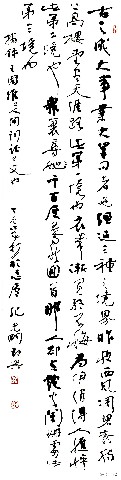 古今之成大事業大學問者必經過三種之境界昨夜西風凋碧樹獨
上高樓望盡天涯路此第一境也衣帶漸寬終不悔為伊消得人憔悴
此第二境也眾裏尋他千百度驀然回首那人卻在燈火闌珊處此
第三境也
王國維人間詞話之文也